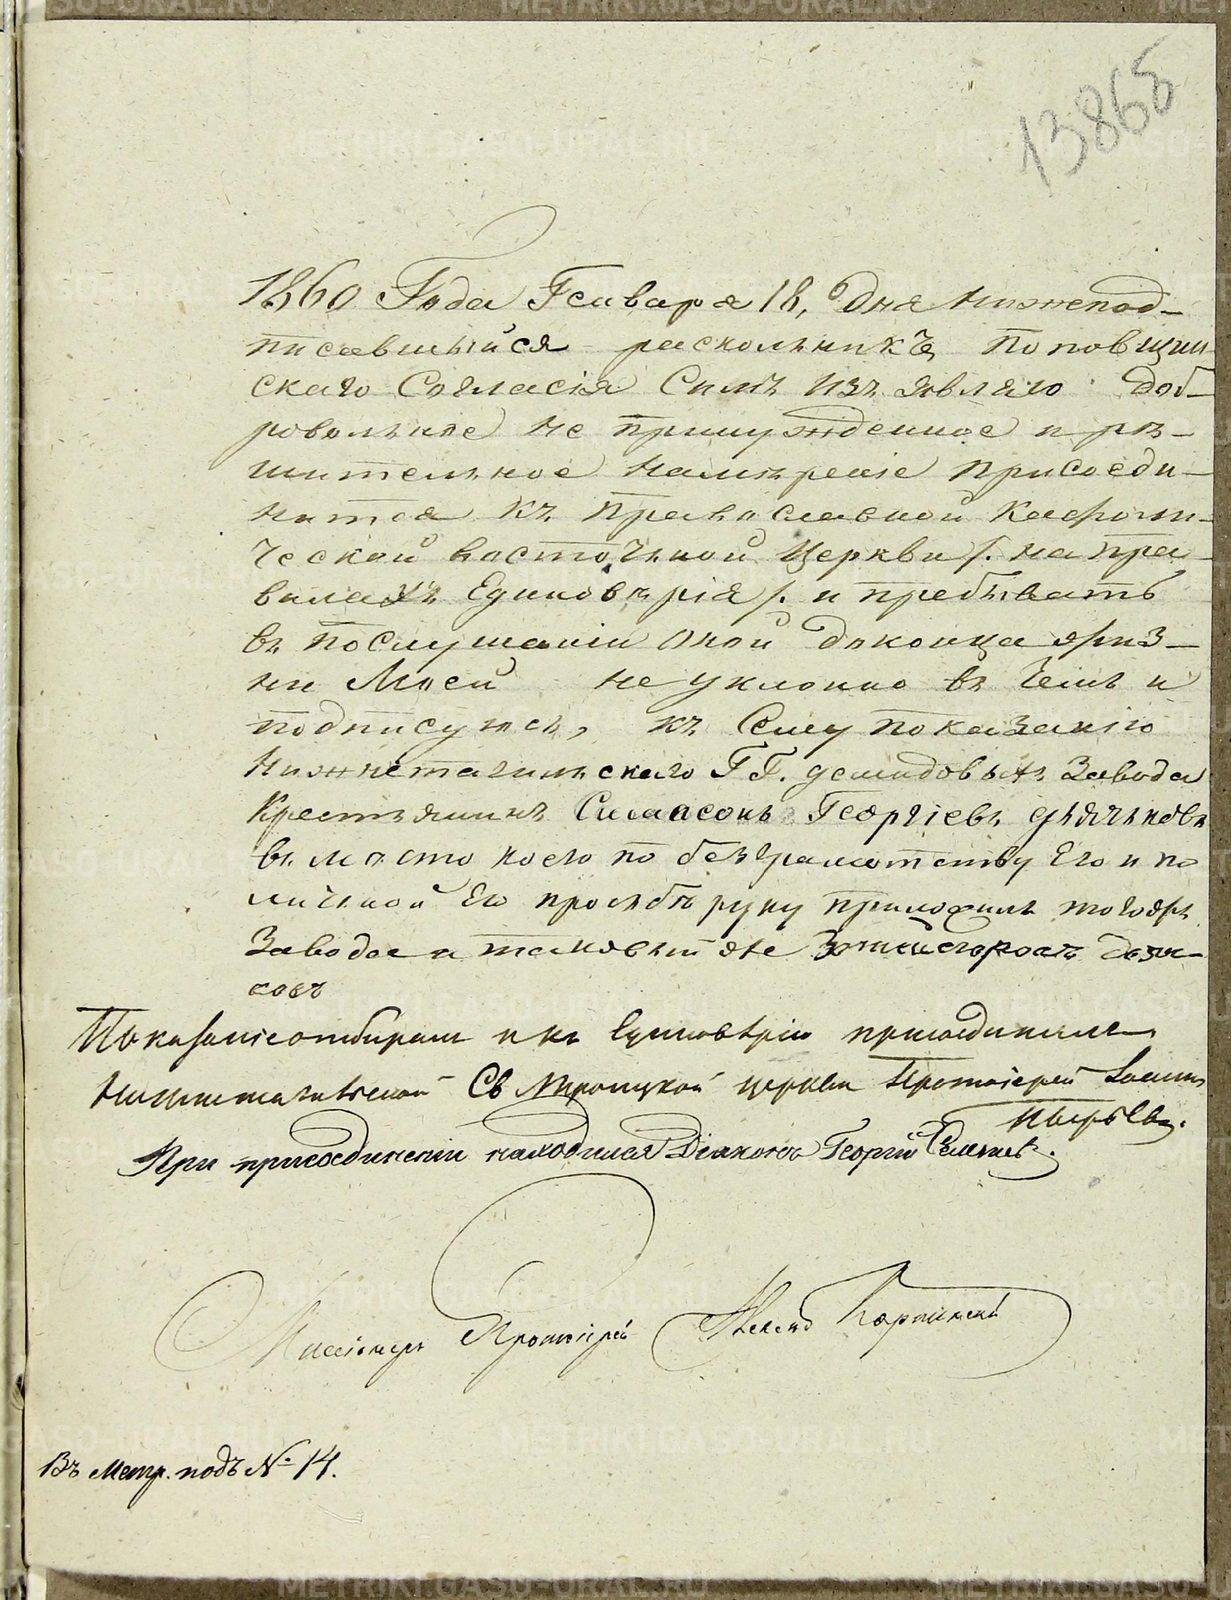 13865
1860 Года Генваря 18, Дня Нижепод-
писавшыйся раскольникъ поповщин
скаго Согласія Симъ изъ являю доб-
ровольное не принужденное и рѣ-
шительное намѣреніе присоеди-
нится къ православной Кафоли-
ческой восточьной Церкви /. на пра-
вилахъ Единовѣрія /. и пребывать
въ послушаніи оной доконца жиз-
ни Моей не уклонно въ Чемъ и
подписуюсь, къ Сему показанію
Нижнетагильскаго ГГ. демидовыхъ Завода
Крестьянинъ Симпсонъ Георгіевъ дьячьковъ
въ место коего по безграмотству Его и по
личьной Его прозьбѣ руку приложилъ тогожъ
Завода и таковый же
ковъ
Показаніе отбиралъ и къ Единовѣрію присоединилъ
Нижнетагильской Св Троицкой церкви Протоіерей Іоаннъ
Пырьевъ.
При присоединеніи находился Діаконъ Георгій
Миссіонеръ Протоіерей
Въ Метр. подъ № 14.